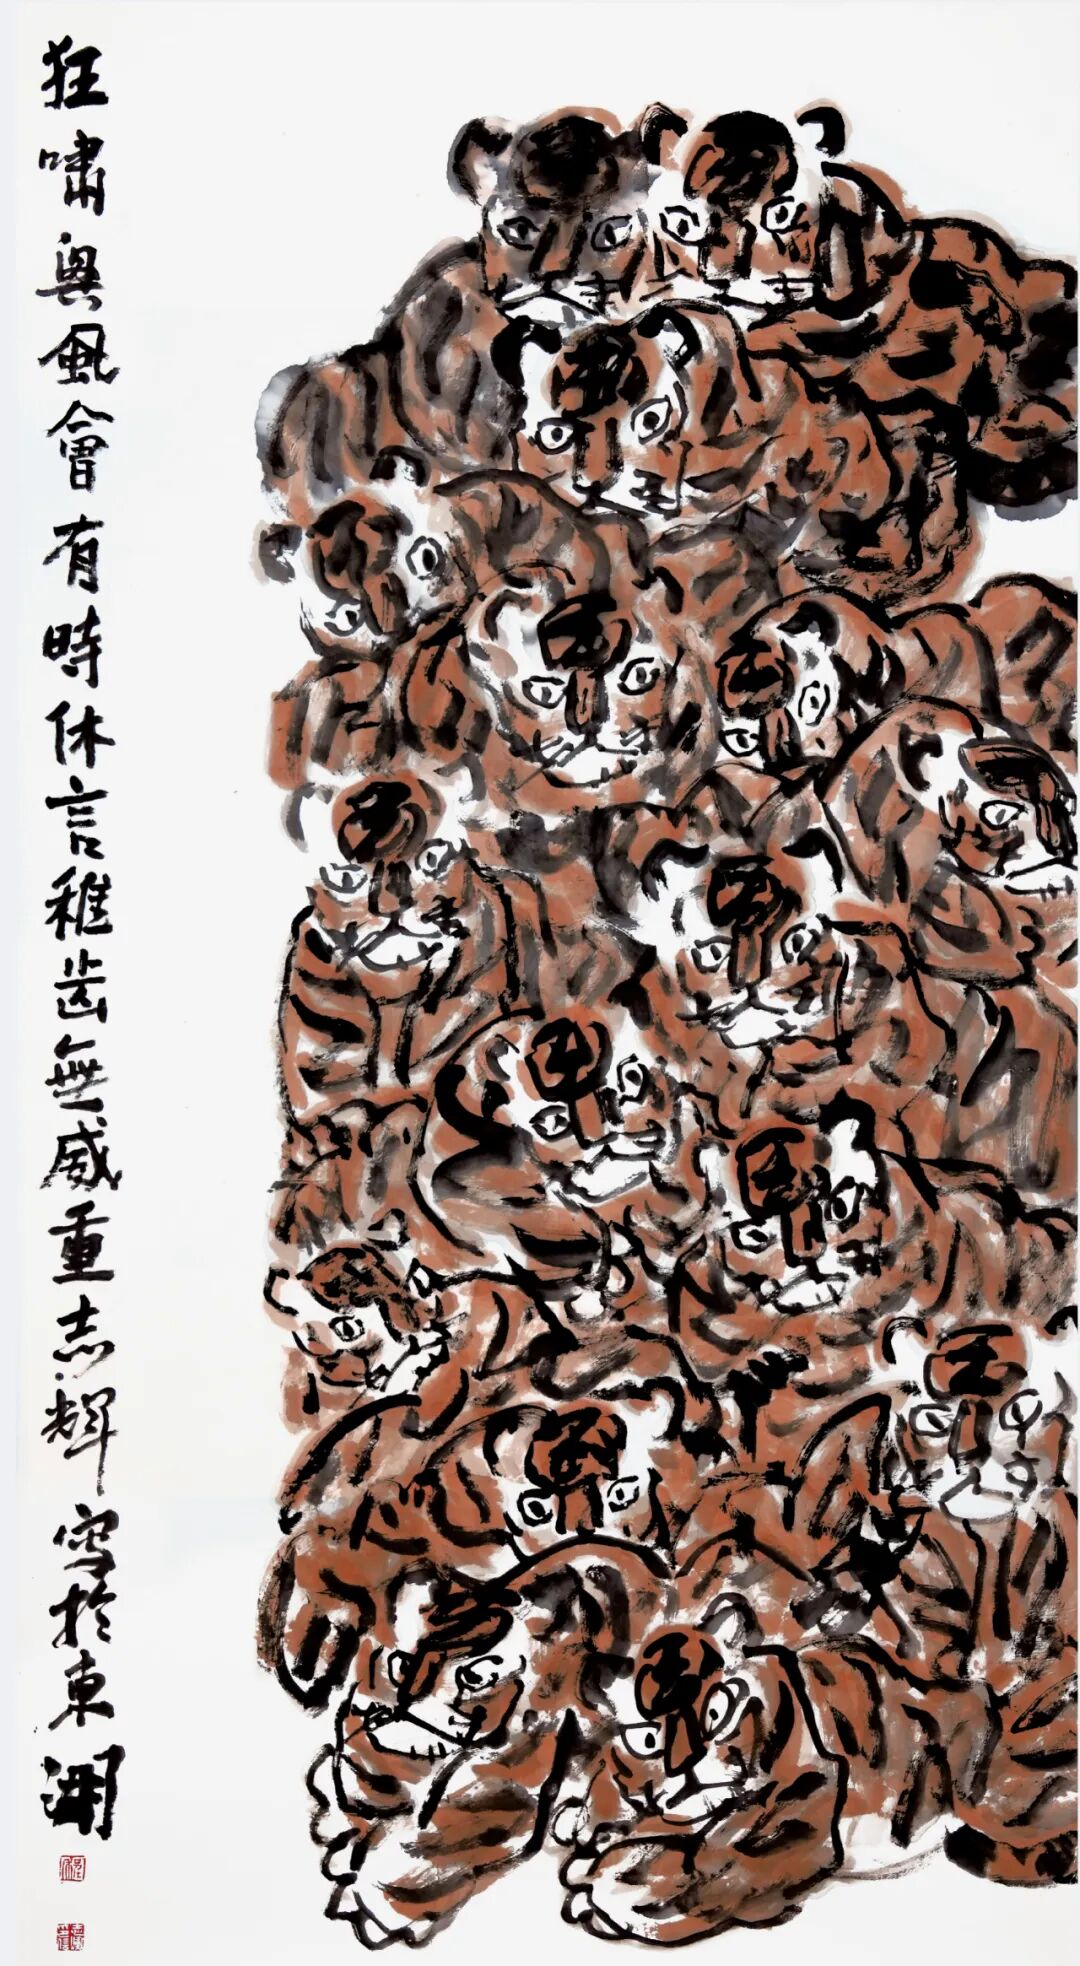 狂嘯興風會有時休言稚齿無威重志輝寫於東